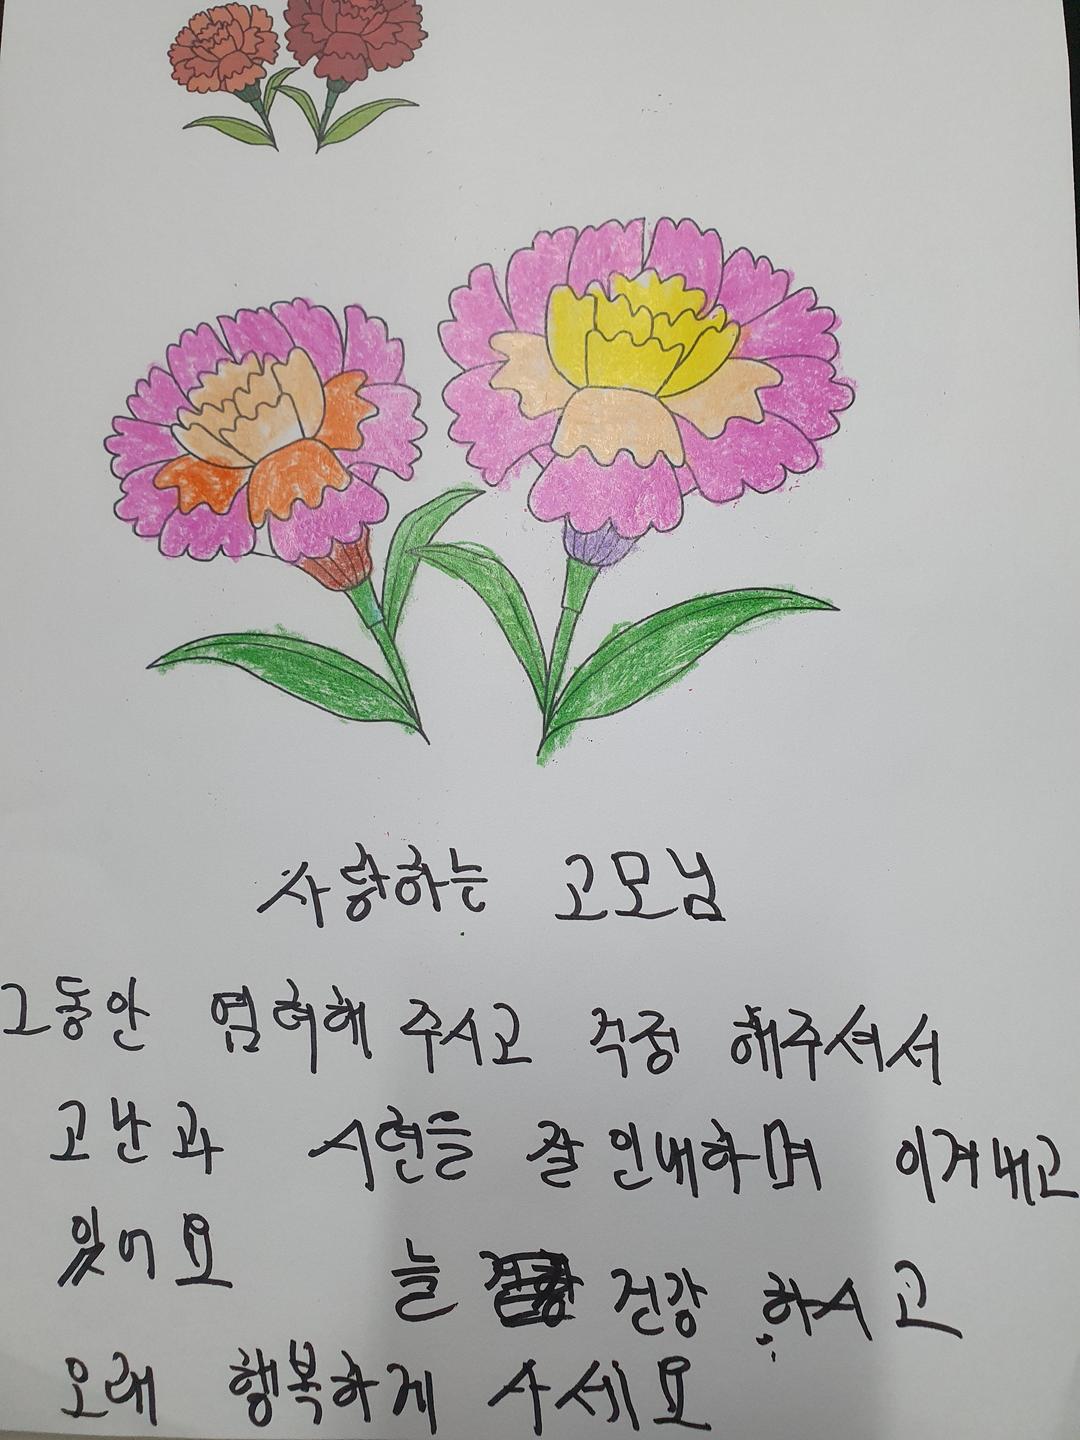 사랑하는 고모님
그동안 염허해 주시고 걱정 해주셔서
고난과 시련을 잘 인내하며 이겨내고
있어요 늘 건강 하시고
오래 행복하게 사세요